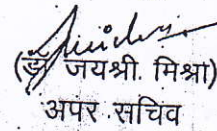 (डॉ जयश्री. मिश्रा)
अपर सचिव